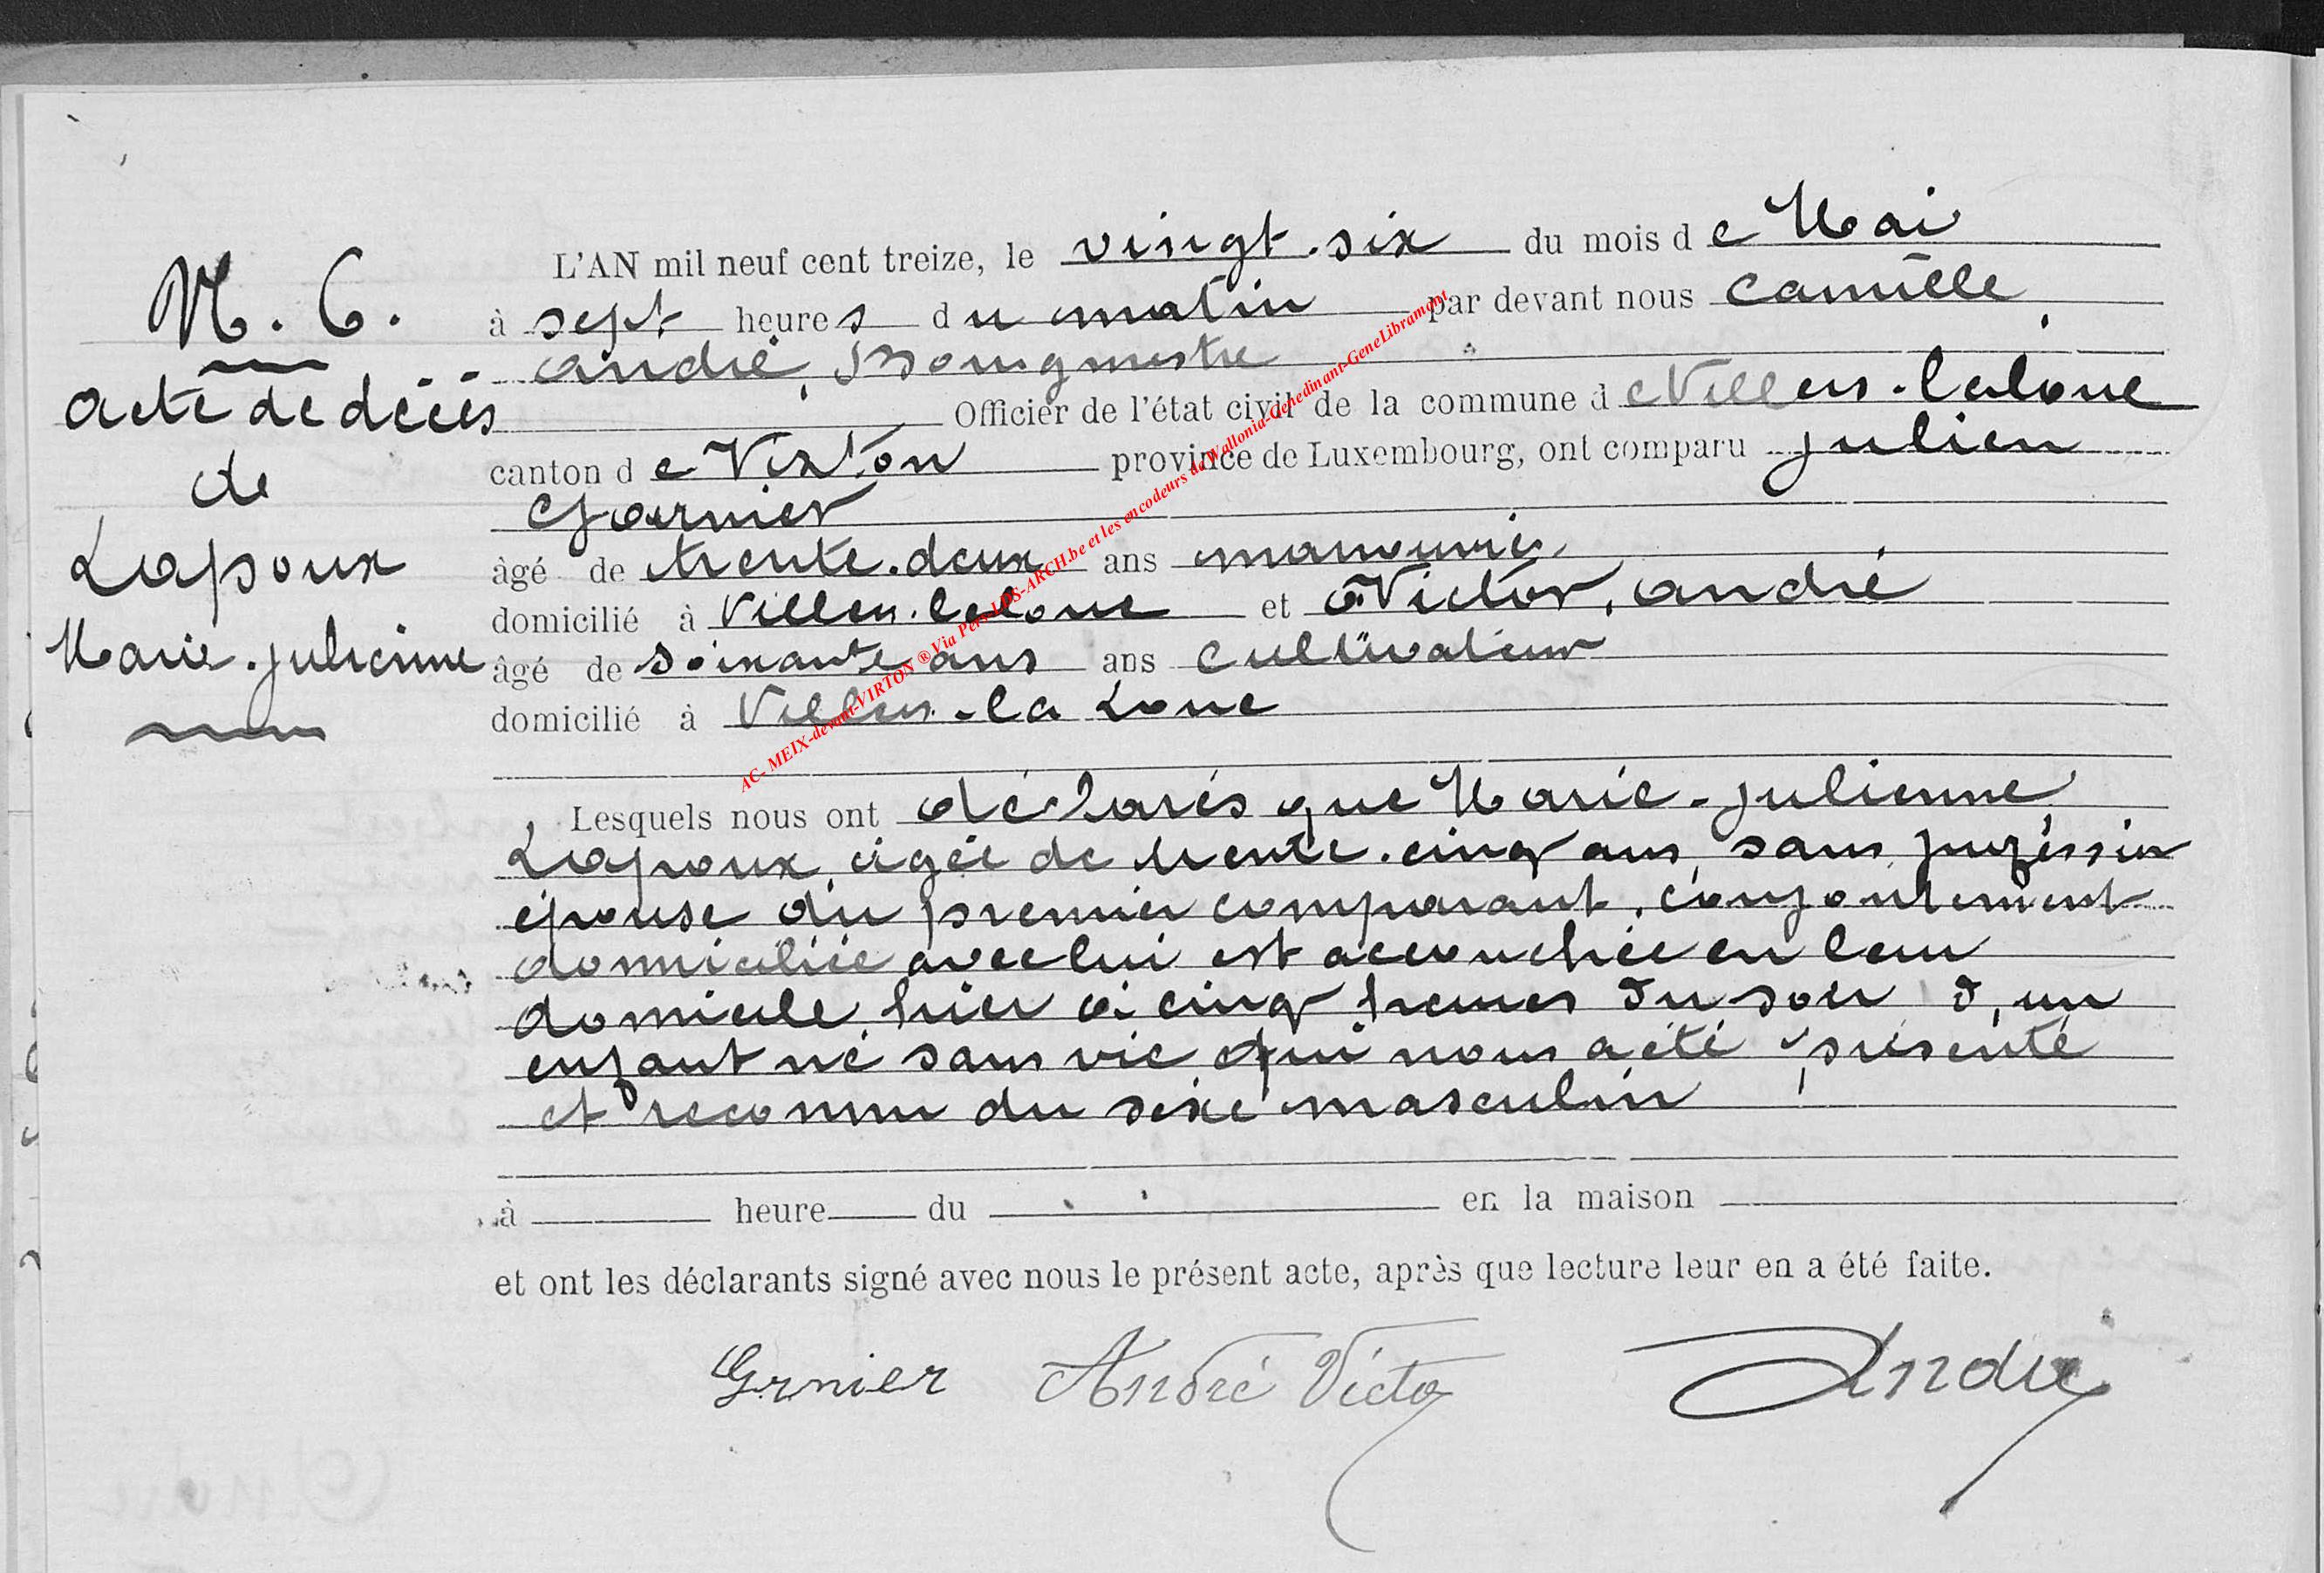 N. 6.
Acte de décès
de
Lapoux
Marie-Julienne
L'AN mil neuf cent treize, le vingt-six du mois de Mai
à sept heures du matin par devant nous Camille
André, Bourgmestre
Officier de l'état civil de la commune de Villers-laloue
canton de Virton province de Luxembourg, ont comparu Julien
Garnier
âgé de trente-deux ans manouvrier
domicilié à Villers-laloue et Victor, André
âgé de soixante ans ans cultivateur
domicilié à Villers-la Loue
Lesquels nous ont déclarés que Marie-Julienne
Lapoux, âgée de trente-cinq ans, sans profession
épouse du premier comparant, conjointement
domiciliée avec lui est accouchée en leur
domicile, hier à cinq heures du soir d'un
enfant né sans vie qui nous a été présenté
et reconnu du sexe masculin
à heure du en la maison
et ont les déclarants signé avec nous le présent acte, après que lecture leur en a été faite.
Grnier André Victo André
AC- MEIX-devant-VIRTON ® Via Pers-LDS-ARCH.be et les encodeurs de Wallonia-denedinant-GeneLibramont